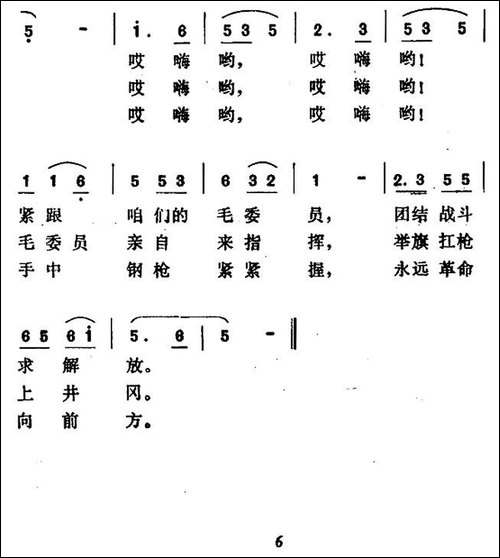 5 - | i. 6 | 5 3 5 | 2. 3 | 5 3 5 |
哎 嗨 哟， 哎 嗨 哟！
哎 嗨 哟， 哎 嗨 哟！
哎 嗨 哟， 哎 嗨 哟！
1 1 6 | 5 5 3 | 6 3 2 | 1 - | 2. 3 5 5 |
紧 跟 咱 们 的 毛 委 员， 团结 战斗
毛 委 员 亲 自 来 指 挥， 举旗 扛枪
手 中 钢 枪 紧 紧 握， 永远 革命
6 5 6 i | 5. 6 | 5 - ‖
求 解 放。
上 井 冈。
向 前 方。
6